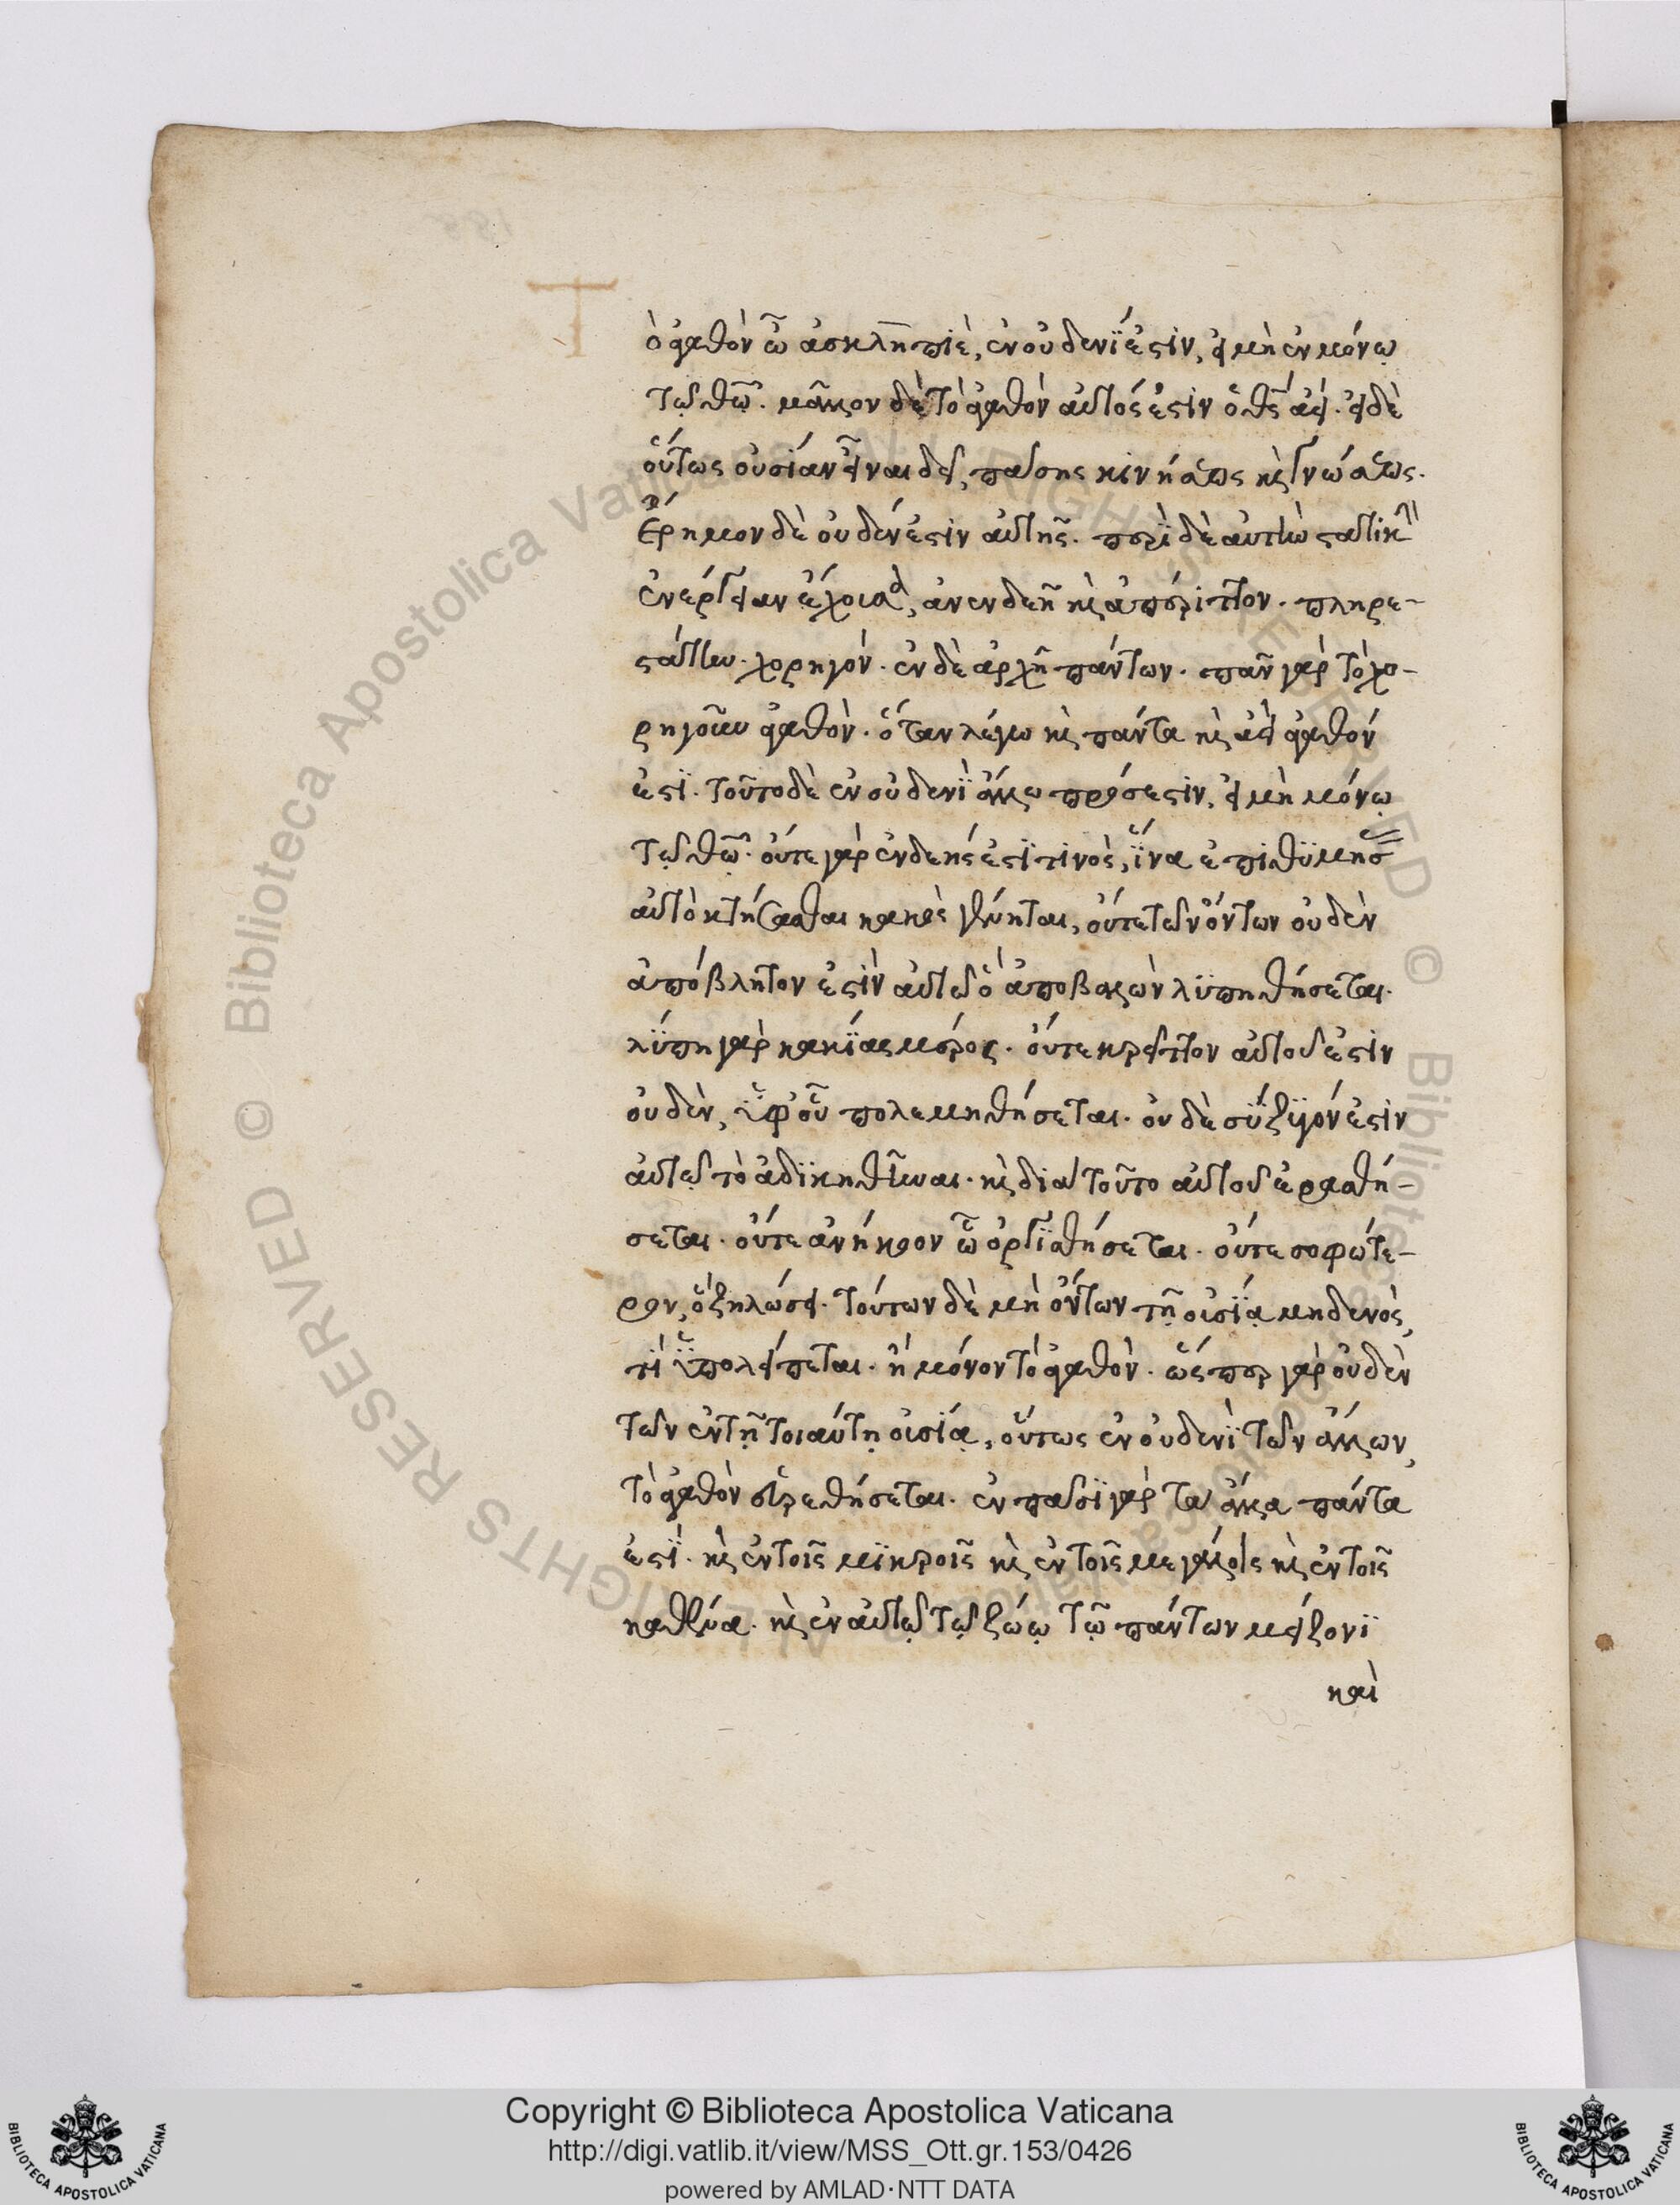 Τ
ὸ ἀγαθὸν ὦ ἀσκληπιὲ, ἐν οὐδενί ἐστιν, εἰ μὴ ἐν μόνω
τῶ θῶ. μᾶλλον δὲ τὸ ἀγαθὸν αὐτός ἐστιν ὁ θς ἀεί. εἰ δὲ
οὕτως οὐσίαν εἶναι δεῖ, πάσης κινήσεως καὶ γενέσεως.
ἔρημον δὲ οὐδέν ἐστιν αὐτῆς. περὶ δὲ αὐτὴν στατικὴν
ἐνέργειαν ἔχουσαν, ἀνενδεῆ καὶ ἀπέριττον. πληρε-
στάτην. χορηγόν. ἐν δὲ ἀρχῆ πάντων. πᾶν γὰρ τὸ χο-
ρηγοῦν ἀγαθὸν. ὅταν λέγω καὶ πάντα καὶ ἀεὶ ἀγαθόν
ἐστι. τοῦτο δὲ ἐν οὐδενὶ ἄλλω πρόσεστιν, εἰ μὴ μόνω
τῶ θῶ. οὔτε γὰρ ἐνδεής ἐστι τινὸς, ἵνα ἐπιθυμήσας
αὐτὸ κτήσασθαι κακὸς γένηται, οὔτε τῶν ὄντων οὐδὲν
ἀπόβλητον ἐστὶν αὐτῶ ὃ ἀποβαλὼν λυπηθήσεται.
λύπη γὰρ κακίας μέρος. οὔτε κρεῖττον αὐτοῦ ἐστιν
οὐδὲν, ὑφ' οὗ πολεμηθήσεται. οὐδὲ σύζυγόν ἐστιν
αὐτῶ τὸ ἀδικηθῆναι. καὶ διὰ τοῦτο αὐτοῦ ἐρασθή-
σεται. οὔτε ἀνήκοον ὧ ὀργισθήσεται. οὔτε σοφώτε-
ρον, ὃ ζηλώσει. τούτων δὲ μὴ ὄντων τῆ οὐσία μηδενὸς,
τί ὑπολείπεται. ἢ μόνον τὸ ἀγαθὸν. ὥσπερ γὰρ οὐδὲν
τῶν ἐν τῆ τοιαύτη οὐσία, οὕτως ἐν οὐδενὶ τῶν ἄλλων,
τὸ ἀγαθὸν εὑρεθήσεται. ἐν πᾶσι γὰρ τὰ ἄλλα πάντα
ἐστί. καὶ ἐν τοῖς μικροῖς καὶ ἐν τοῖς μεγάλοις καὶ ἐν τοῖς
καθ' ἕνα. καὶ ἐν αὐτῶ τῶ ζώω τῶ πάντων μείζονι
καὶ
Copyright © Biblioteca Apostolica Vaticana
http://digi.vatlib.it/view/MSS_Ott.gr.153/0426
powered by AMLAD·NTT DATA